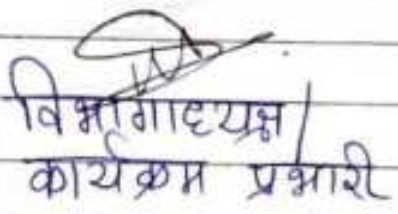 विभागाध्यक्ष/
कार्यक्रम प्रभारी